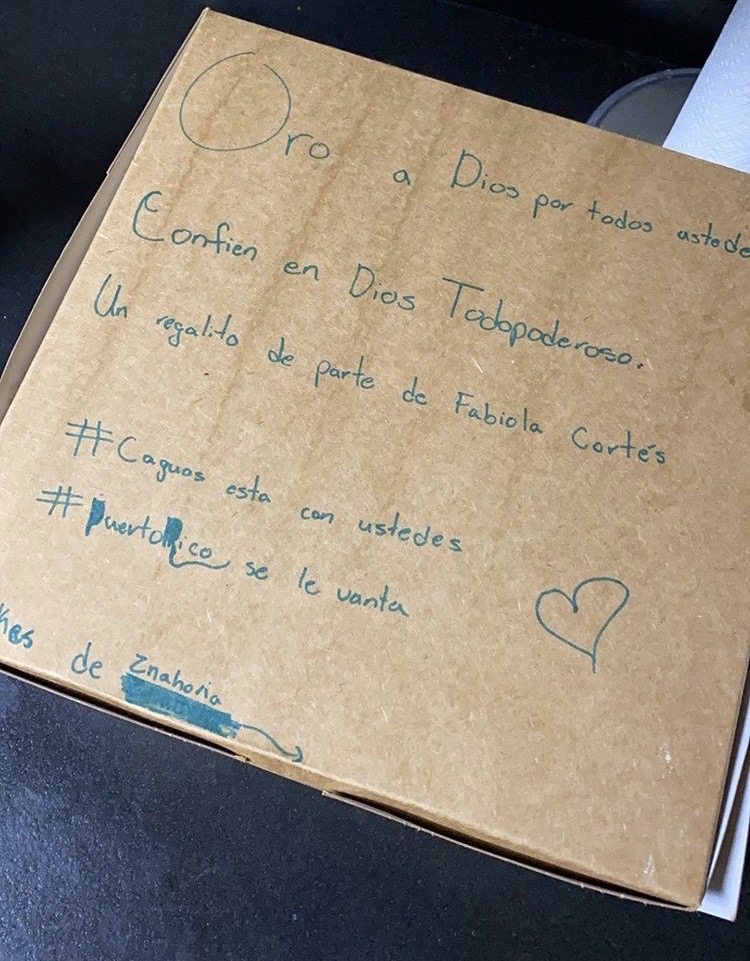 Oro a Dios por todos astede
Confien en Dios Todopoderoso.
Un regalito de parte de Fabiola Cortés
#Caguas esta con ustedes
#PuertoRico se le vanta
kes de Znahoria